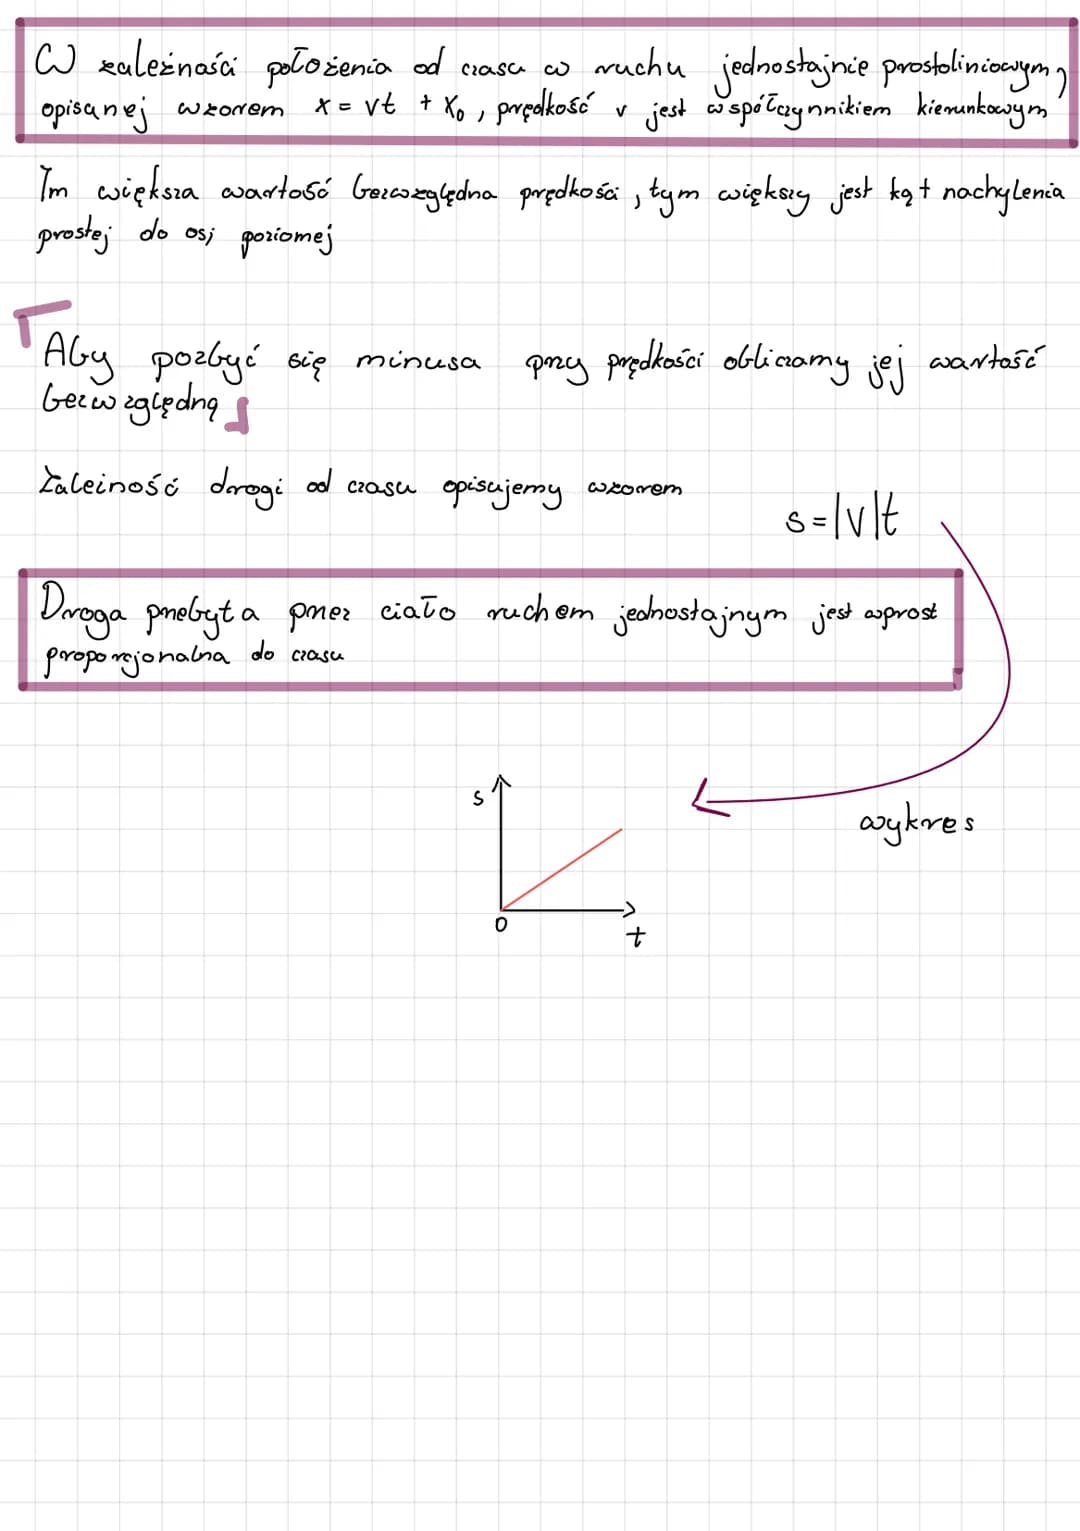 W zależności położenia od czasu w ruchu jednostajnie prostoliniowym,
opisanej wzorem x = vt + x₀, prędkość v jest współczynnikiem kierunkowym
Im większa wartość bezwzględna prędkości, tym większy jest kąt nachylenia
prostej do osi poziomej
Aby pozbyć się minusa przy prędkości obliczamy jej wartość
bezwzględną
Zależność drogi od czasu opisujemy wzorem
s=|v|t
Droga przebyta przez ciało ruchem jednostajnym jest wprost
proporcjonalna do czasu
s
wykres
0
t